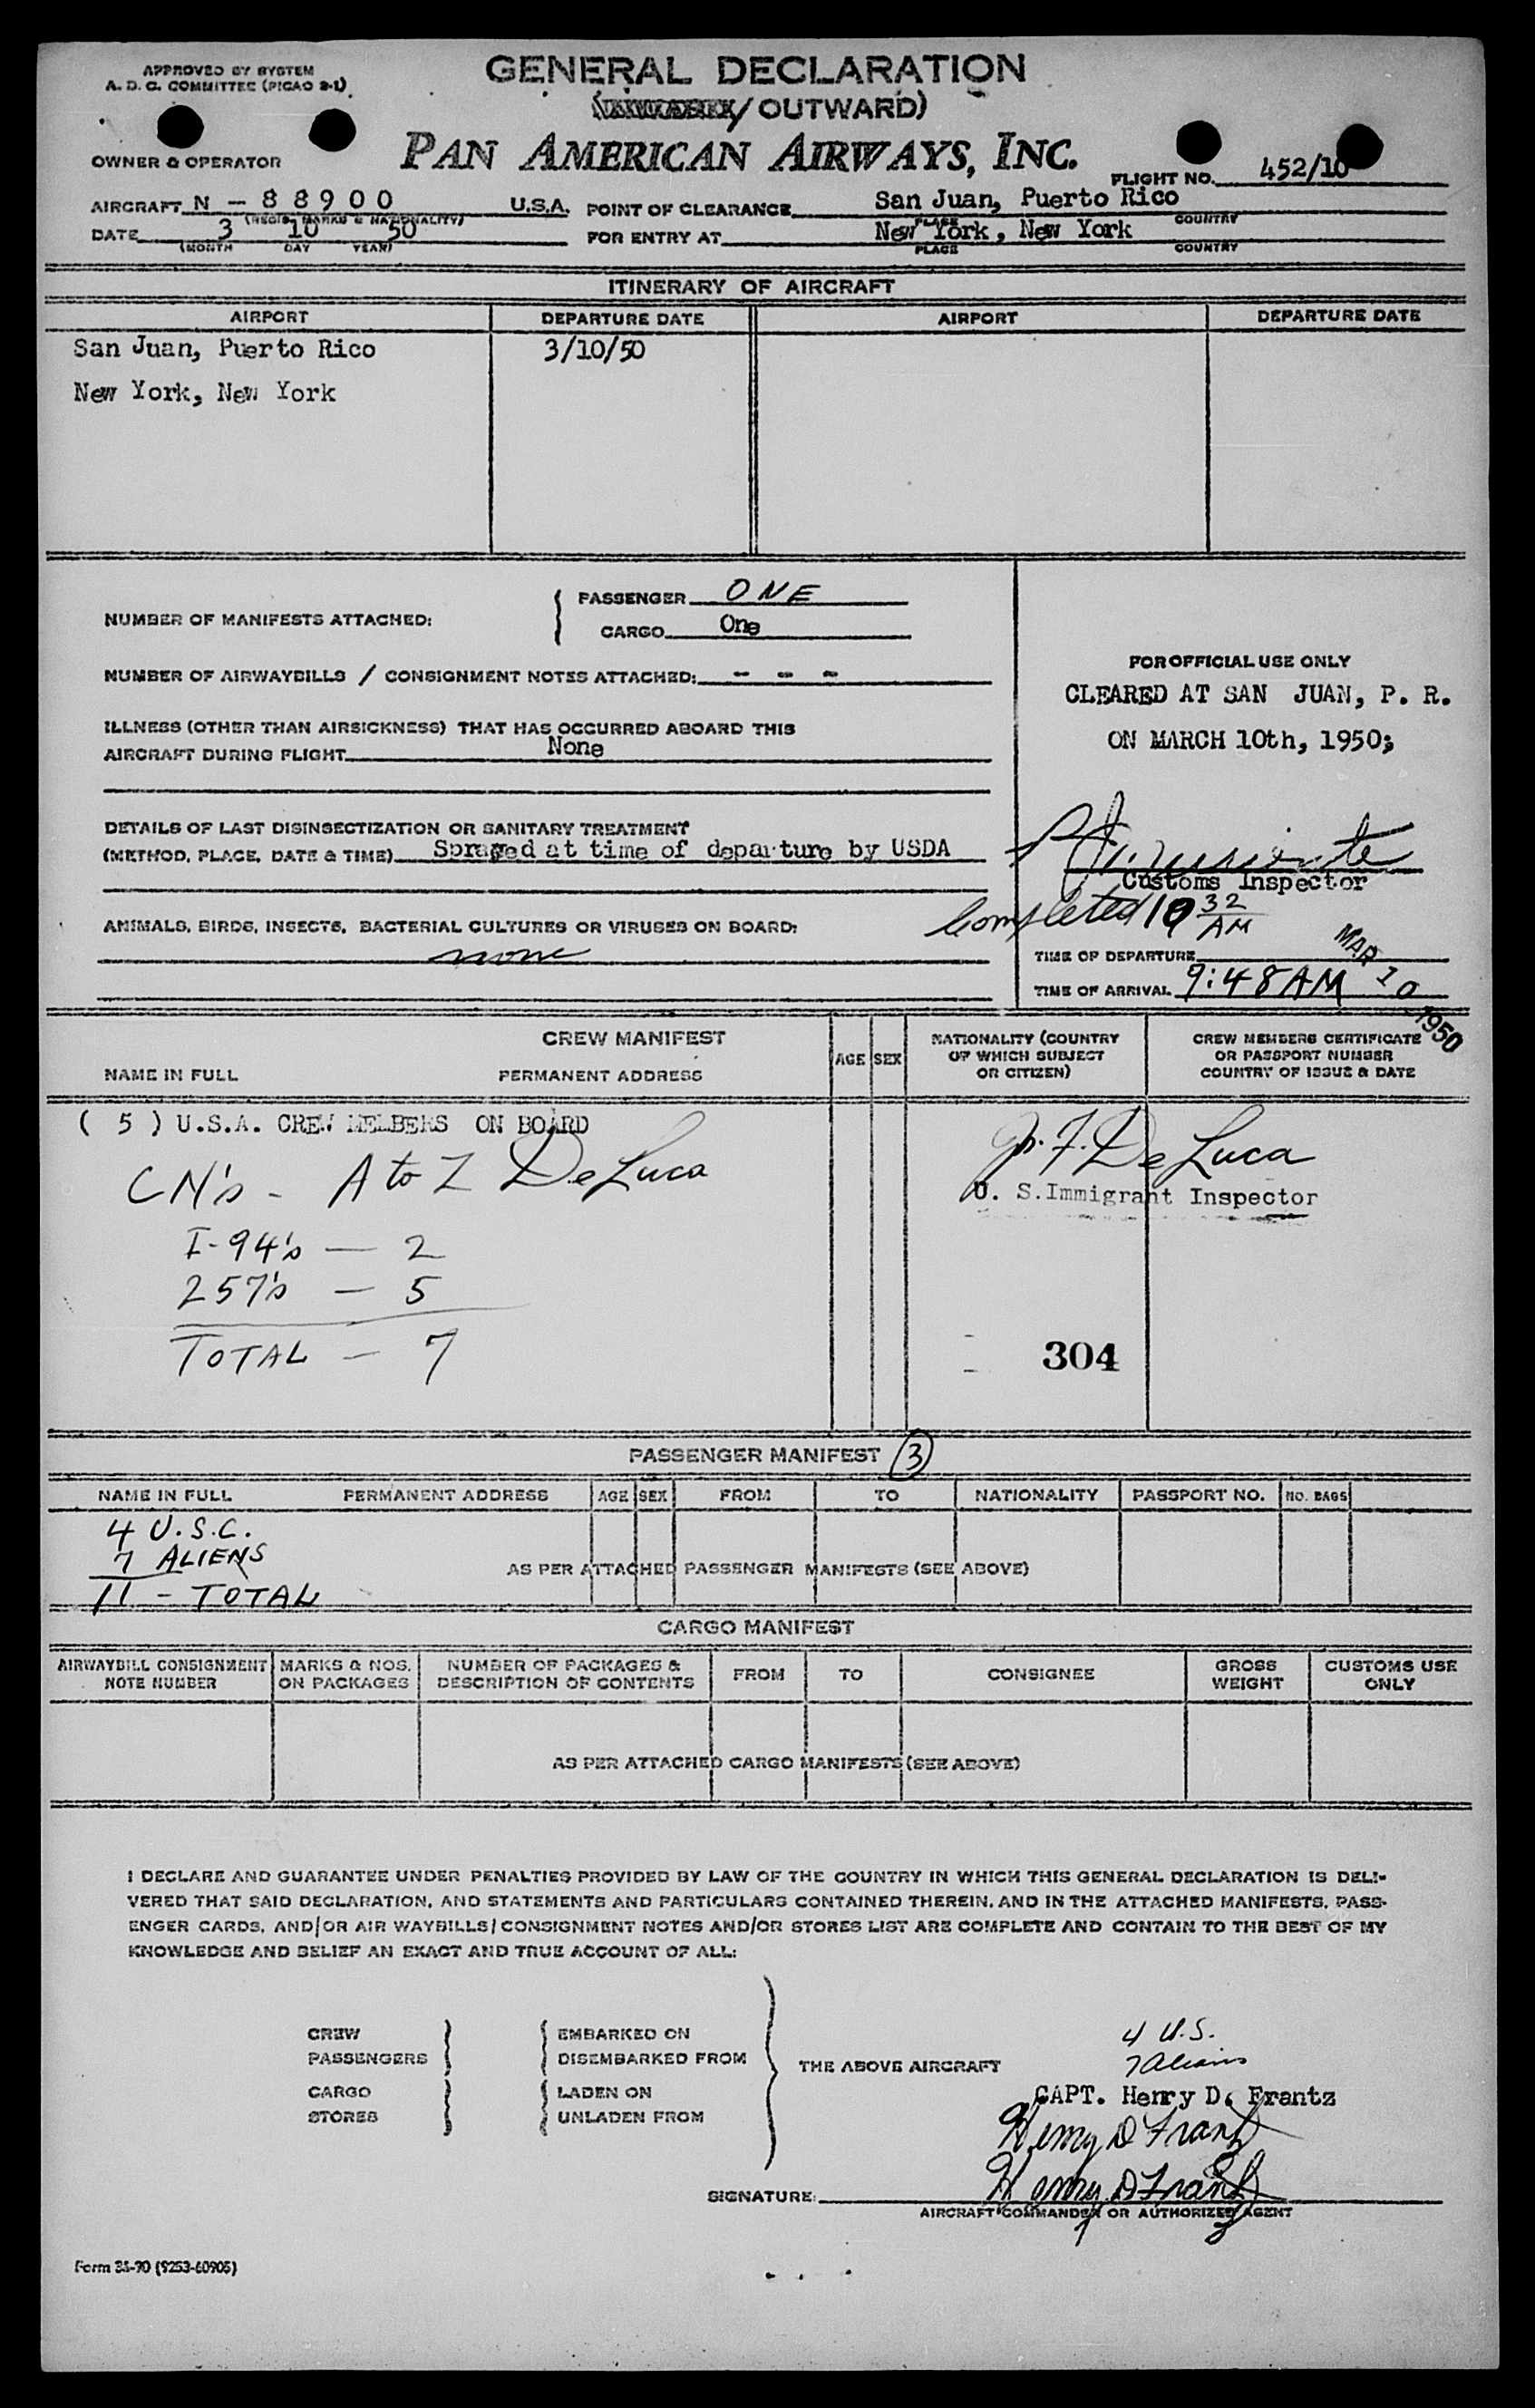 APPROVED BY SYSTEM
A. D. C. COMMITTEE (PICAO 2-1)
GENERAL DECLARATION
/ OUTWARD)
OWNER & OPERATOR
PAN AMERICAN AIRWAYS, INC.
FLIGHT NO. 452/10
AIRCRAFT N - 88900 U.S.A.
(REGIS. MARKS & NATIONALITY)
POINT OF CLEARANCE San Juan, Puerto Rico
PLACE COUNTRY
DATE 3 10 50
(MONTH DAY YEAR)
FOR ENTRY AT New York, New York
PLACE COUNTRY
ITINERARY OF AIRCRAFT
AIRPORT DEPARTURE DATE AIRPORT DEPARTURE DATE
San Juan, Puerto Rico 3/10/50
New York, New York
NUMBER OF MANIFESTS ATTACHED:
PASSENGER ONE
CARGO One
NUMBER OF AIRWAYBILLS / CONSIGNMENT NOTES ATTACHED: - - -
ILLNESS (OTHER THAN AIRSICKNESS) THAT HAS OCCURRED ABOARD THIS
AIRCRAFT DURING FLIGHT None
DETAILS OF LAST DISINSECTIZATION OR SANITARY TREATMENT
(METHOD, PLACE, DATE & TIME) Sprayed at time of departure by USDA
ANIMALS, BIRDS, INSECTS, BACTERIAL CULTURES OR VIRUSES ON BOARD:
none
FOR OFFICIAL USE ONLY
CLEARED AT SAN JUAN, P. R.
ON MARCH 10th, 1950;
Customs Inspector
Completed 10 32 AM
TIME OF DEPARTURE
TIME OF ARRIVAL 9:48 AM
MAR 10 1950
CREW MANIFEST
NAME IN FULL PERMANENT ADDRESS
AGE SEX
NATIONALITY (COUNTRY
OF WHICH SUBJECT
OR CITIZEN)
CREW MEMBERS CERTIFICATE
OR PASSPORT NUMBER
COUNTRY OF ISSUE & DATE
( 5 ) U.S.A. CREW MEMBERS ON BOARD
CN's - A to Z DeLuca
I-94's — 2
257's — 5
TOTAL — 7
F. DeLuca
U. S. Immigrant Inspector
304
PASSENGER MANIFEST 3
NAME IN FULL PERMANENT ADDRESS AGE SEX FROM TO NATIONALITY PASSPORT NO. NO. BAGS
4 U.S.C.
7 ALIENS
11 - TOTAL
AS PER ATTACHED PASSENGER MANIFESTS (SEE ABOVE)
CARGO MANIFEST
AIRWAYBILL CONSIGNMENT
NOTE NUMBER
MARKS & NOS.
ON PACKAGES
NUMBER OF PACKAGES &
DESCRIPTION OF CONTENTS
FROM TO CONSIGNEE
GROSS
WEIGHT
CUSTOMS USE
ONLY
AS PER ATTACHED CARGO MANIFESTS (SEE ABOVE)
I DECLARE AND GUARANTEE UNDER PENALTIES PROVIDED BY LAW OF THE COUNTRY IN WHICH THIS GENERAL DECLARATION IS DELI-
VERED THAT SAID DECLARATION, AND STATEMENTS AND PARTICULARS CONTAINED THEREIN, AND IN THE ATTACHED MANIFESTS, PASS-
ENGER CARDS, AND/OR AIR WAYBILLS/CONSIGNMENT NOTES AND/OR STORES LIST ARE COMPLETE AND CONTAIN TO THE BEST OF MY
KNOWLEDGE AND BELIEF AN EXACT AND TRUE ACCOUNT OF ALL:
CREW
PASSENGERS
CARGO
STORES
EMBARKED ON
DISEMBARKED FROM
LADEN ON
UNLADEN FROM
THE ABOVE AIRCRAFT
4 U.S.
7 Aliens
CAPT. Henry D. Frantz
Henry D Frantz
SIGNATURE: Henry D Frantz
AIRCRAFT COMMANDER OR AUTHORIZED AGENT
Form 35-90 (9253-60905)